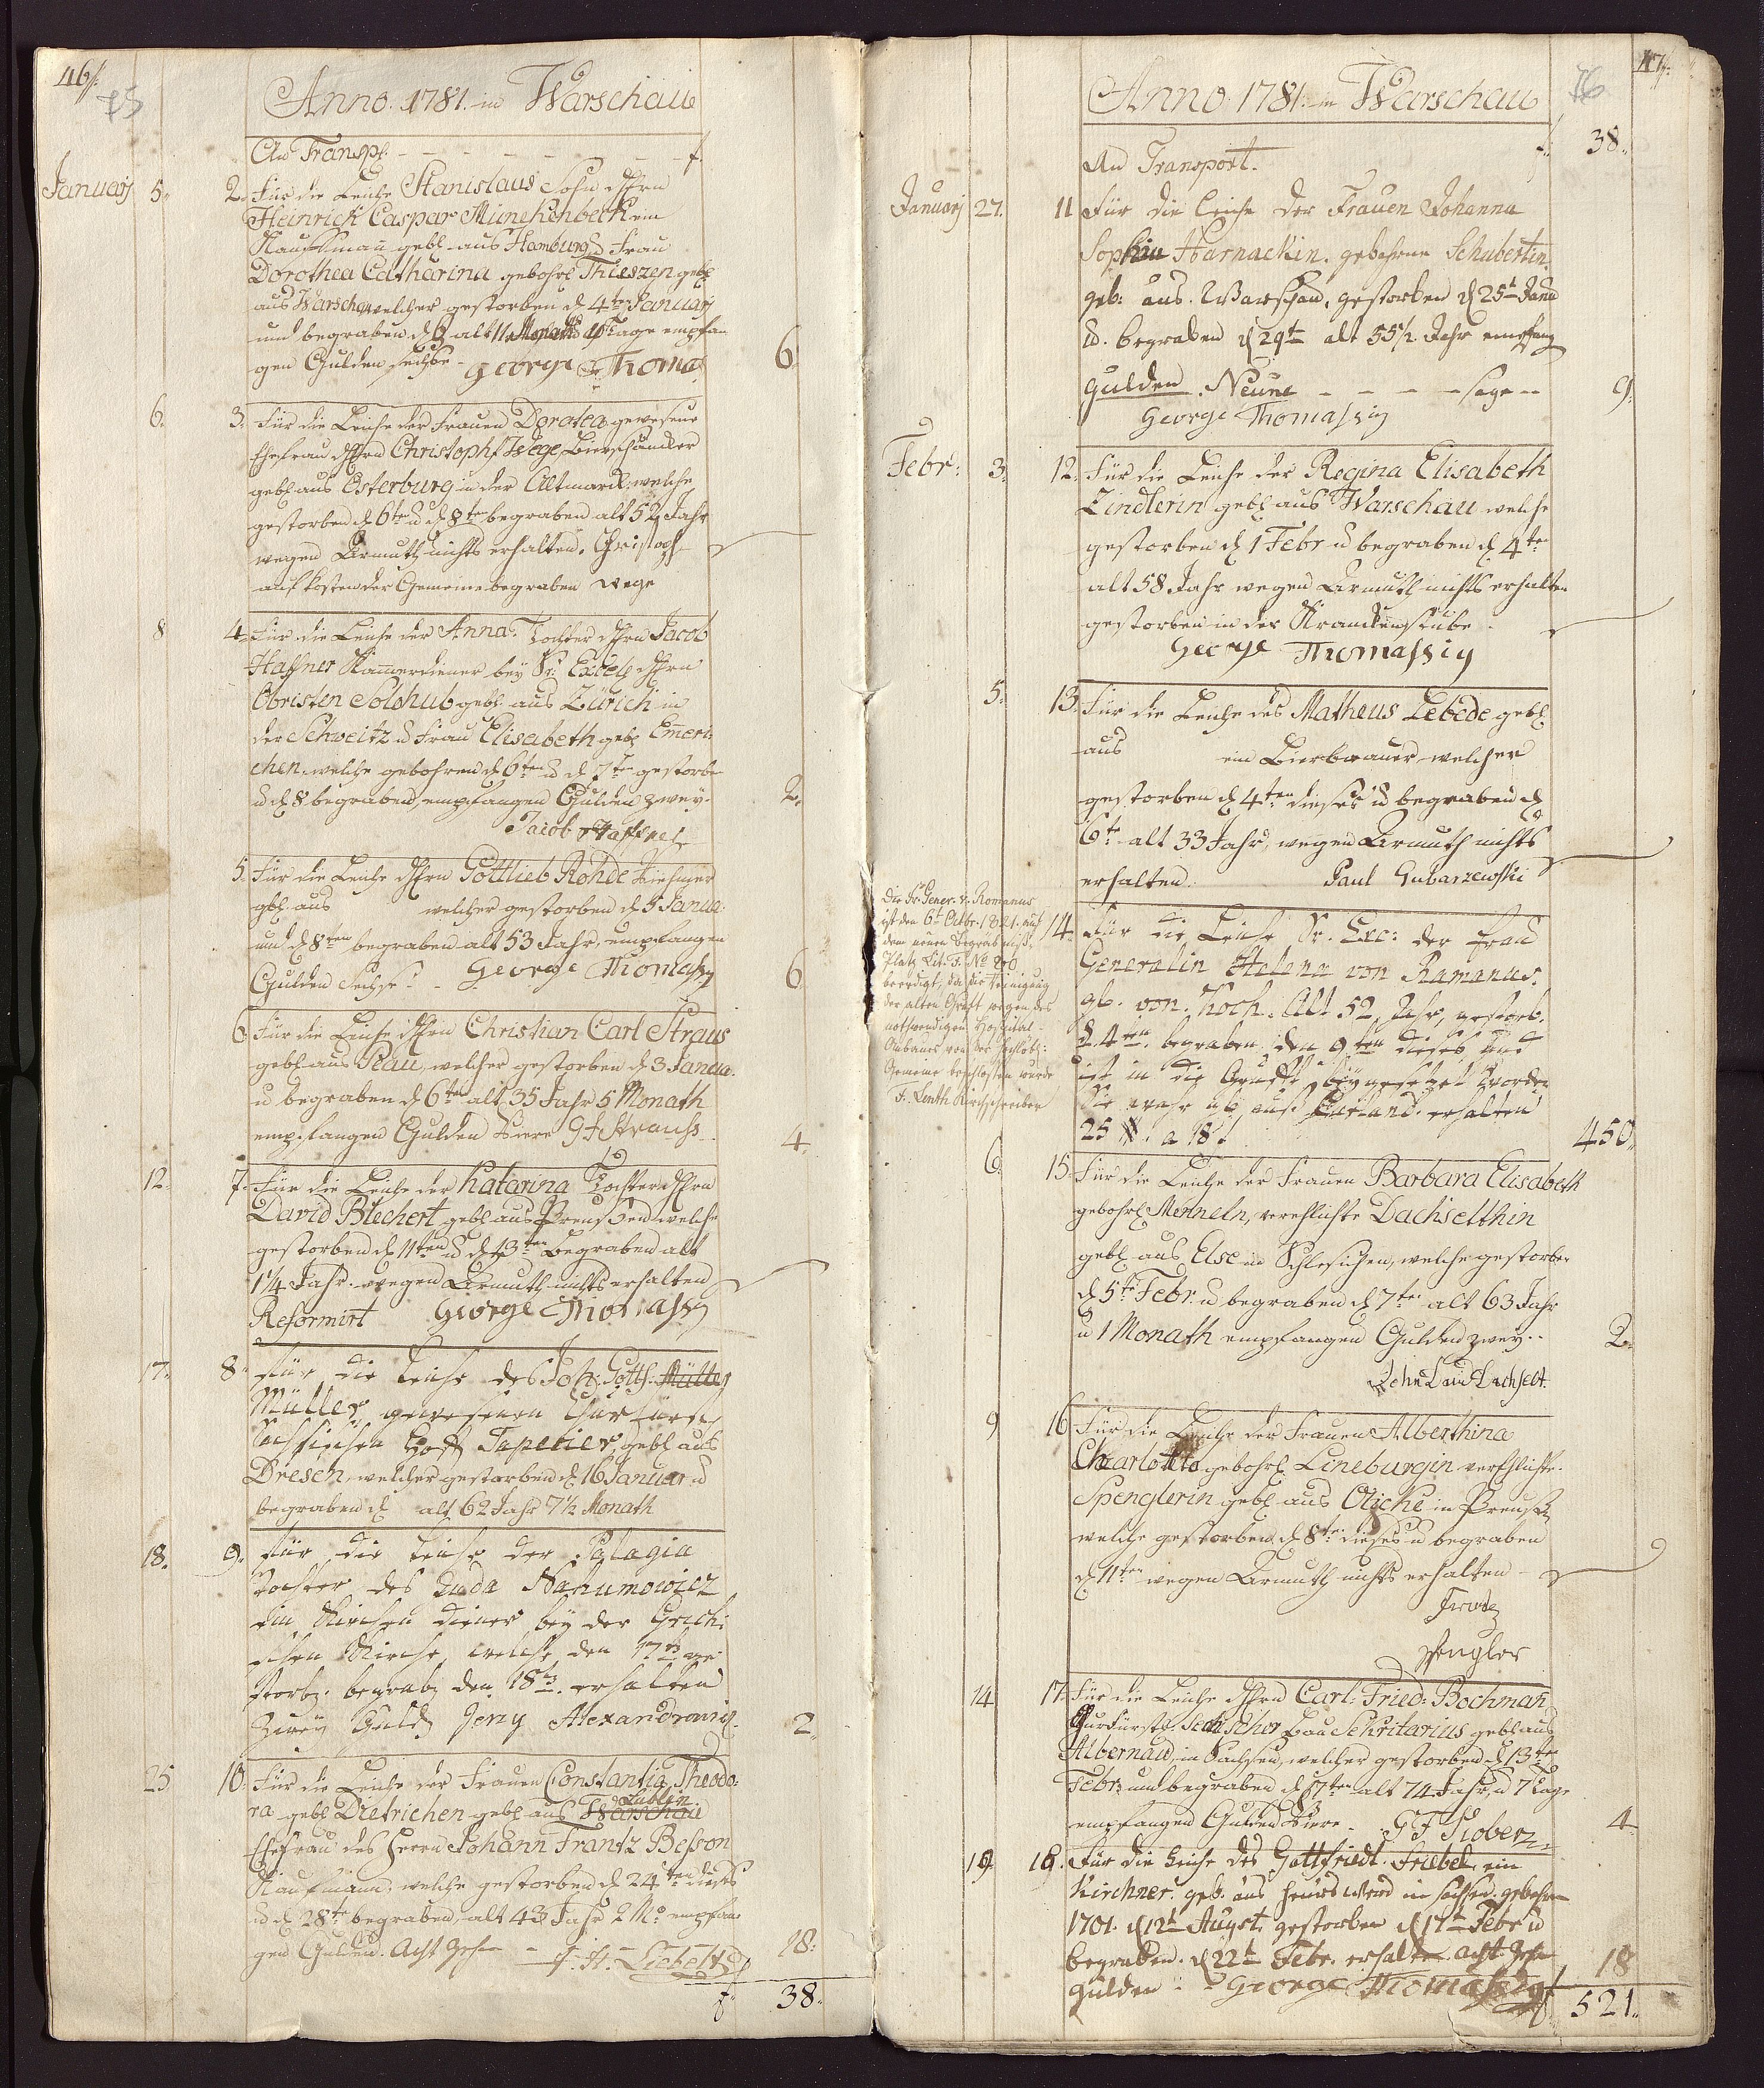 46
75
Anno. 1781. in Warschau
An Transp. - - - - - - f.
Januarj 5. 2. Für die Leiche Stanislaus Sohn d Hrn
Heinrich Caspar Münckenbeck ein
Kauffmann geb. aus Hamburg u Frau
Dorothea Catharina gebohr. Thieszen geb.
aus Warschau welcher gestorben d 4ten Januarj
und begraben d alt 11 Monath Tage empfan
gen Gulden sechse - George Thomas 6
6. 3. Für die Leiche der Frauen Dorotea gewesene
Ehefrau d Hrn Christoph Wege Bierschäncker
geb. aus Osterburg in der Altmarck, welche
gestorben d 6te u d 8te begraben alt 52 Jahr
wegen Armuth nichts erhalten. Christoph
auf Kosten der Gemeine begraben wege
8 4. Für die Leiche der Anna Tochter d Hrn Jacob
Haffner Kammerdiener bey Sr. Excell. d Hrn
Obristen Solohub geb. aus Zürich in
der Schweitz u Frau Elisabeth geb. Emeri
chen welche gebohren d 6ten u d 7ten gestorbe
u d 8 begraben, empfangen Gulden zwey. 2.
Jacob Haffner
5. Für die Leiche d Hrn Gottlieb Rohde
geb. aus welcher gestorben d 5 Janua:
und d 8ten begraben alt 53 Jahr, empfangen
Gulden Sechse. - George Thomassig 6
6. Für die Leiche d Hrn Christian Carl Straus
geb. aus Plau, welcher gestorben d 3 Janua.
u begraben d 6ten alt 35 Jahr 5 Monath
empfangen Gulden Viere G F Strauss 4.
12. 7. Für die Leiche der Katarina Tochter d Hrn
David Blechert geb. aus Preussen welche
gestorben d 11ten u d 13ten begraben alt
1 1/4 Jahr. wegen Armuth nichts erhalten
Reformirt George Thomassig
17. 8. Für die Leiche des Joh: Gottf: Mülle
Müller gewesenen Churfürst
Sächsischen Hoff Tapetier, geb. aus
Dresen, welcher gestorben d 16 Januar u
begraben d alt 62 Jahr 7 1/2 Monath
18. 9. Für die Leiche der Pelagia
Tochter des Juda Nahumowicz
ein Kirchen Diener bey der Grichi
schen Kirche, welche den 17t ge
storb. begrab den 18t. erhalten
Zwey Guld Jerzy Alexandrowicz. 2.
25 10. Für die Leiche der Frauen Constantia Theodo:
Lublin
ra geb. Dietrichen geb. aus Warschau
Ehefrau des Herrn Johann Frantz Besson
Kaufmann, welche gestorben d 24ten dieses
u d 28te begraben, alt 43 Jahr 2 Mo empfan
gen Gulden. Acht Zehn - J. H. Liebelt 18.
f. 38.
47
76
Anno 1781. in Warschau
An Transport. f. 38.
Januarj 27. 11 Für die Leiche der Frauen Johanna
Sophia Harnackin. gebohrne Schubertin
geb: aus. Warschau, gestorben d 25t Janu
u. begraben d 29t alt 55 1/2. Jahr empfang
gulden. Neune - - - - sage -- 9.
George Thomassig
Febr: 3. 12. Für die Leiche der Regina Elisabeth
Zindlerin geb. aus Warschau welche
gestorben d 1 Febr u begraben d 4te
alt 58 Jahr wegen Armuth nichts erhalten
gestorben in der Kranckenstube.
George Thomassig
5. 13. Für die Leiche des Matheus Lebede geb.
aus ein Bierbrauer welcher
gestorben d 4ten dieses u begraben d
6te alt 33 Jahr, wegen Armuth nichts
erhalten. Paul Gubarzewski
Die Fr Gener. v. Romanus
ist den 6t Octbr. 1821. auf
dem neuen Begräbniß
Platz Lit. F. No 200
beerdigt, da die Reinigung
der alten Gruft wegen des
nothwendigen Hospital-
Anbaues von der Hochlöb:
Gemeine beschlossen wurde
F. Lenth Kirchschreiber
14. Für die Leiche Sr. Exc: der Frau
Generalin Helena von Ramanus.
gb. von. Koch. Alt 52, Jahr, gestorb.
d 4ten. begraben den 9ten dieses und
ist in die Gruffte beygesetzet worden
Sie wahr geb aus Curland. erhalten
25 #. a 18 f 450.
6. 15. Für die Leiche der Frauen Barbara Elisabeth
gebohr. Menneln, verehlichte Dachselthin
geb. aus Else in Schlesichen, welche gestorben
d 5te Febr. u begraben d 7te alt 63 Jahr
u 1 Monath empfangen Gulden zwey.. 2.
Dachselt.
9 16 Für die Leiche der Frauen Alberthina
Charlotte gebohr. Lineburgin verehlichte.
Spenglerin geb. aus in Preuss
welche gestorben d 8te dieses u begraben
d 11ten wegen Armuth nichts erhalten -
Spengler
14 17. Für die Leiche d Hrn Carl: Fried: Bochman
Curfürstl. Sechscher Bau Sekritarius geb. aus
Albernau, in Sachsen, welcher gestorben d 13ten
Febr: und begraben d 17ten alt 74 Jahr, u 7 Tage
empfangen Gulden Viere - G F 4
19 18. Für die Leiche des Gottfriedt Friebel, ein
Kirchner. geb. aus in Sachsen. gebohren
1701. d 12t August, gestorben d 17t Febr u
begraben. d 22t Febr. erhalten acht Zehn 18
gulden - George Thomassig f 521.